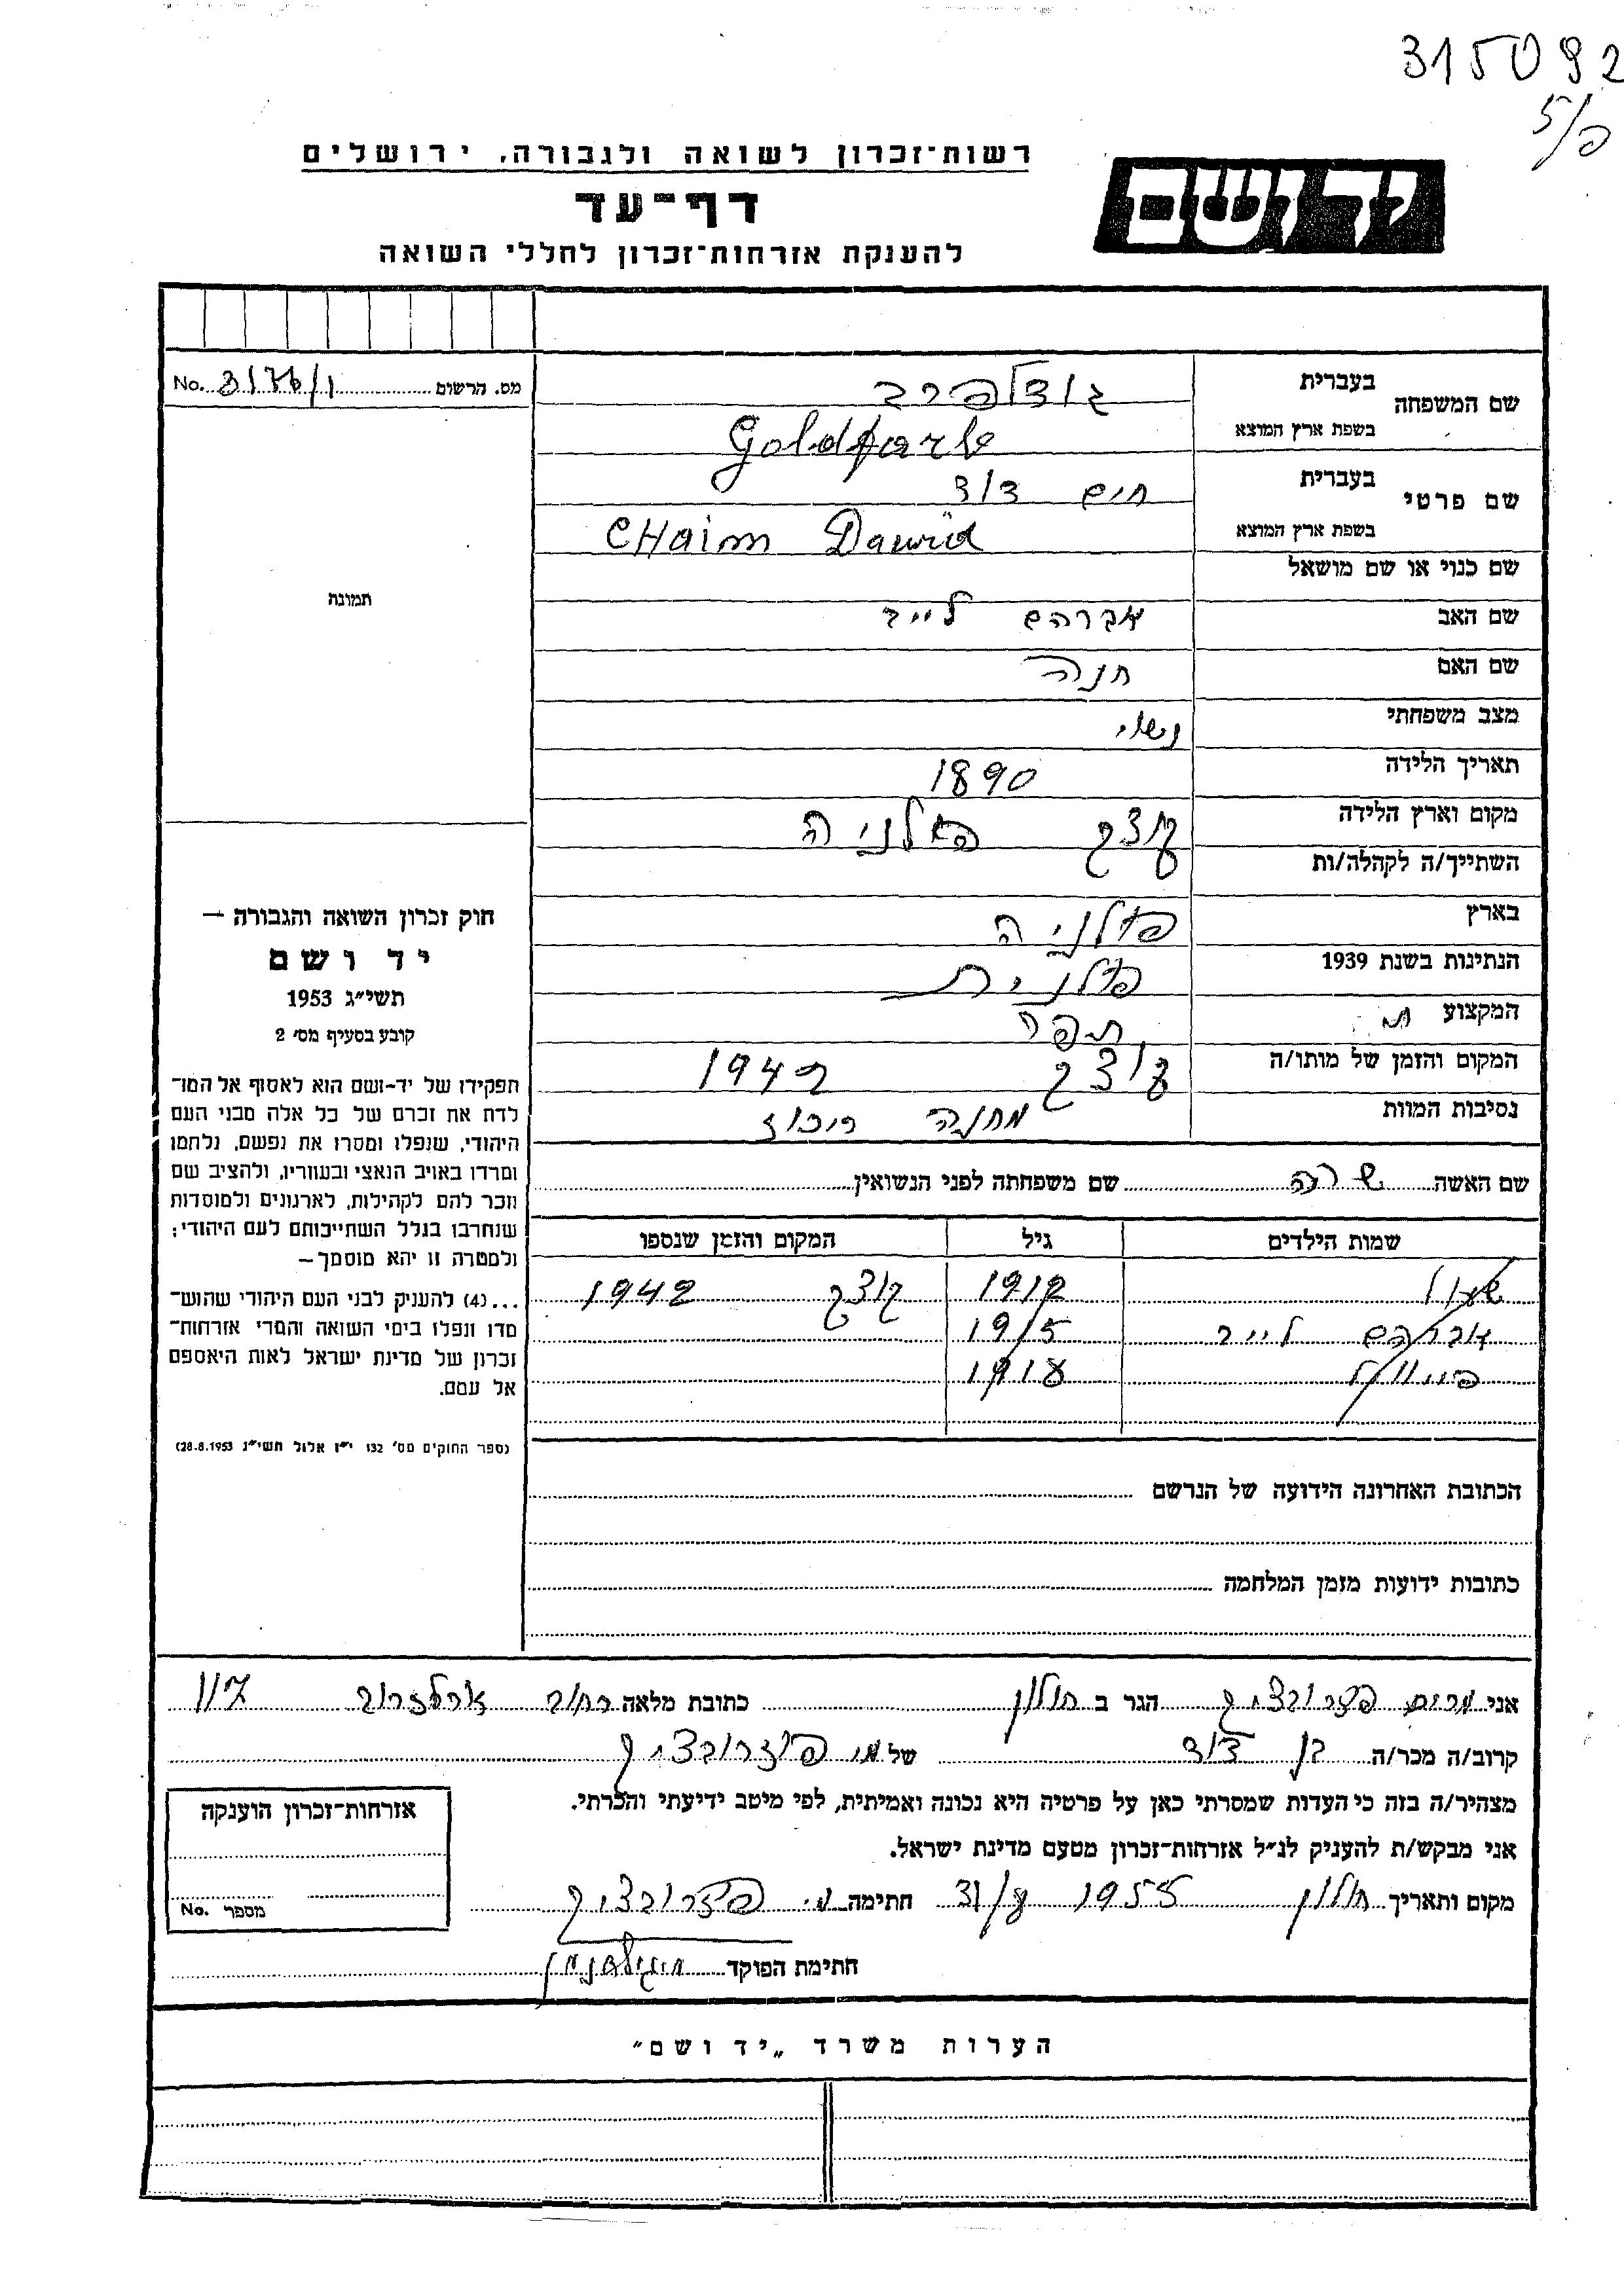 315092
5/פ
רשות־זכרון לשואה ולגבורה, ירושלים
יד ושם
דף־עד
להענקת אזרחות־זכרון לחללי השואה
מס. הרשום No.
שם המשפחה
בעברית גולדפרב
בשפת ארץ המוצא Goldfarb
שם פרטי
בעברית חיים דוד
בשפת ארץ המוצא CHaim Dawid
שם כנוי או שם מושאל
שם האב אברהם לייב
שם האם חנה
מצב משפחתי נשוי
תאריך הלידה 1890
מקום וארץ הלידה קוצק פולניה
השתייך/ה לקהלה/ות
בארץ פולניה
הנתינות בשנת 1939 פולנית
המקצוע
המקום והזמן של מותו/ה קוצק 1942
נסיבות המוות מחנה ריכוז
שם האשה שרה שם משפחתה לפני הנשואין
שמות הילדים גיל המקום והזמן שנספו
שאול 1912 קוצק 1942
אברהם לייב 1915
פייוול 1918
תמונה
חוק זכרון השואה והגבורה —
יד ושם
תשי״ג 1953
קובע בסעיף מס׳ 2
תפקידו של יד-ושם הוא לאסוף אל המו־
לדת את זכרם של כל אלה מבני העם
היהודי, שנפלו ומסרו את נפשם, נלחמו
ומרדו באויב הנאצי ובעוזריו, ולהציב שם
וזכר להם לקהילות, לארגונים ולמוסדות
שנחרבו בגלל השתייכותם לעם היהודי;
ולמטרה זו יהא מוסמך—
...(4) להעניק לבני העם היהודי שהוש־
מדו ונפלו בימי השואה והמרי אזרחות־
זכרון של מדינת ישראל לאות היאספם
אל עמם.
(ספר החוקים מס׳ 132 י״ז אלול תשי״ג 28.8.1953)
הכתובת האחרונה הידועה של הנרשם
כתובות ידועות מזמן המלחמה
אני מרים הגר ב חולון כתובת מלאה רחוב ארלוזרוב
קרוב/ה מכר/ה בן דוד של
מצהיר/ה בזה כי העדות שמסרתי כאן על פרטיה היא נכונה ואמיתית, לפי מיטב ידיעתי והכרתי.
אני מבקש/ת להעניק לנ״ל אזרחות־זכרון מטעם מדינת ישראל.
מקום ותאריך חולון 1955 חתימה
חתימת הפוקד
אזרחות־זכרון הוענקה
מספר No.
הערות משרד „יד ושם״